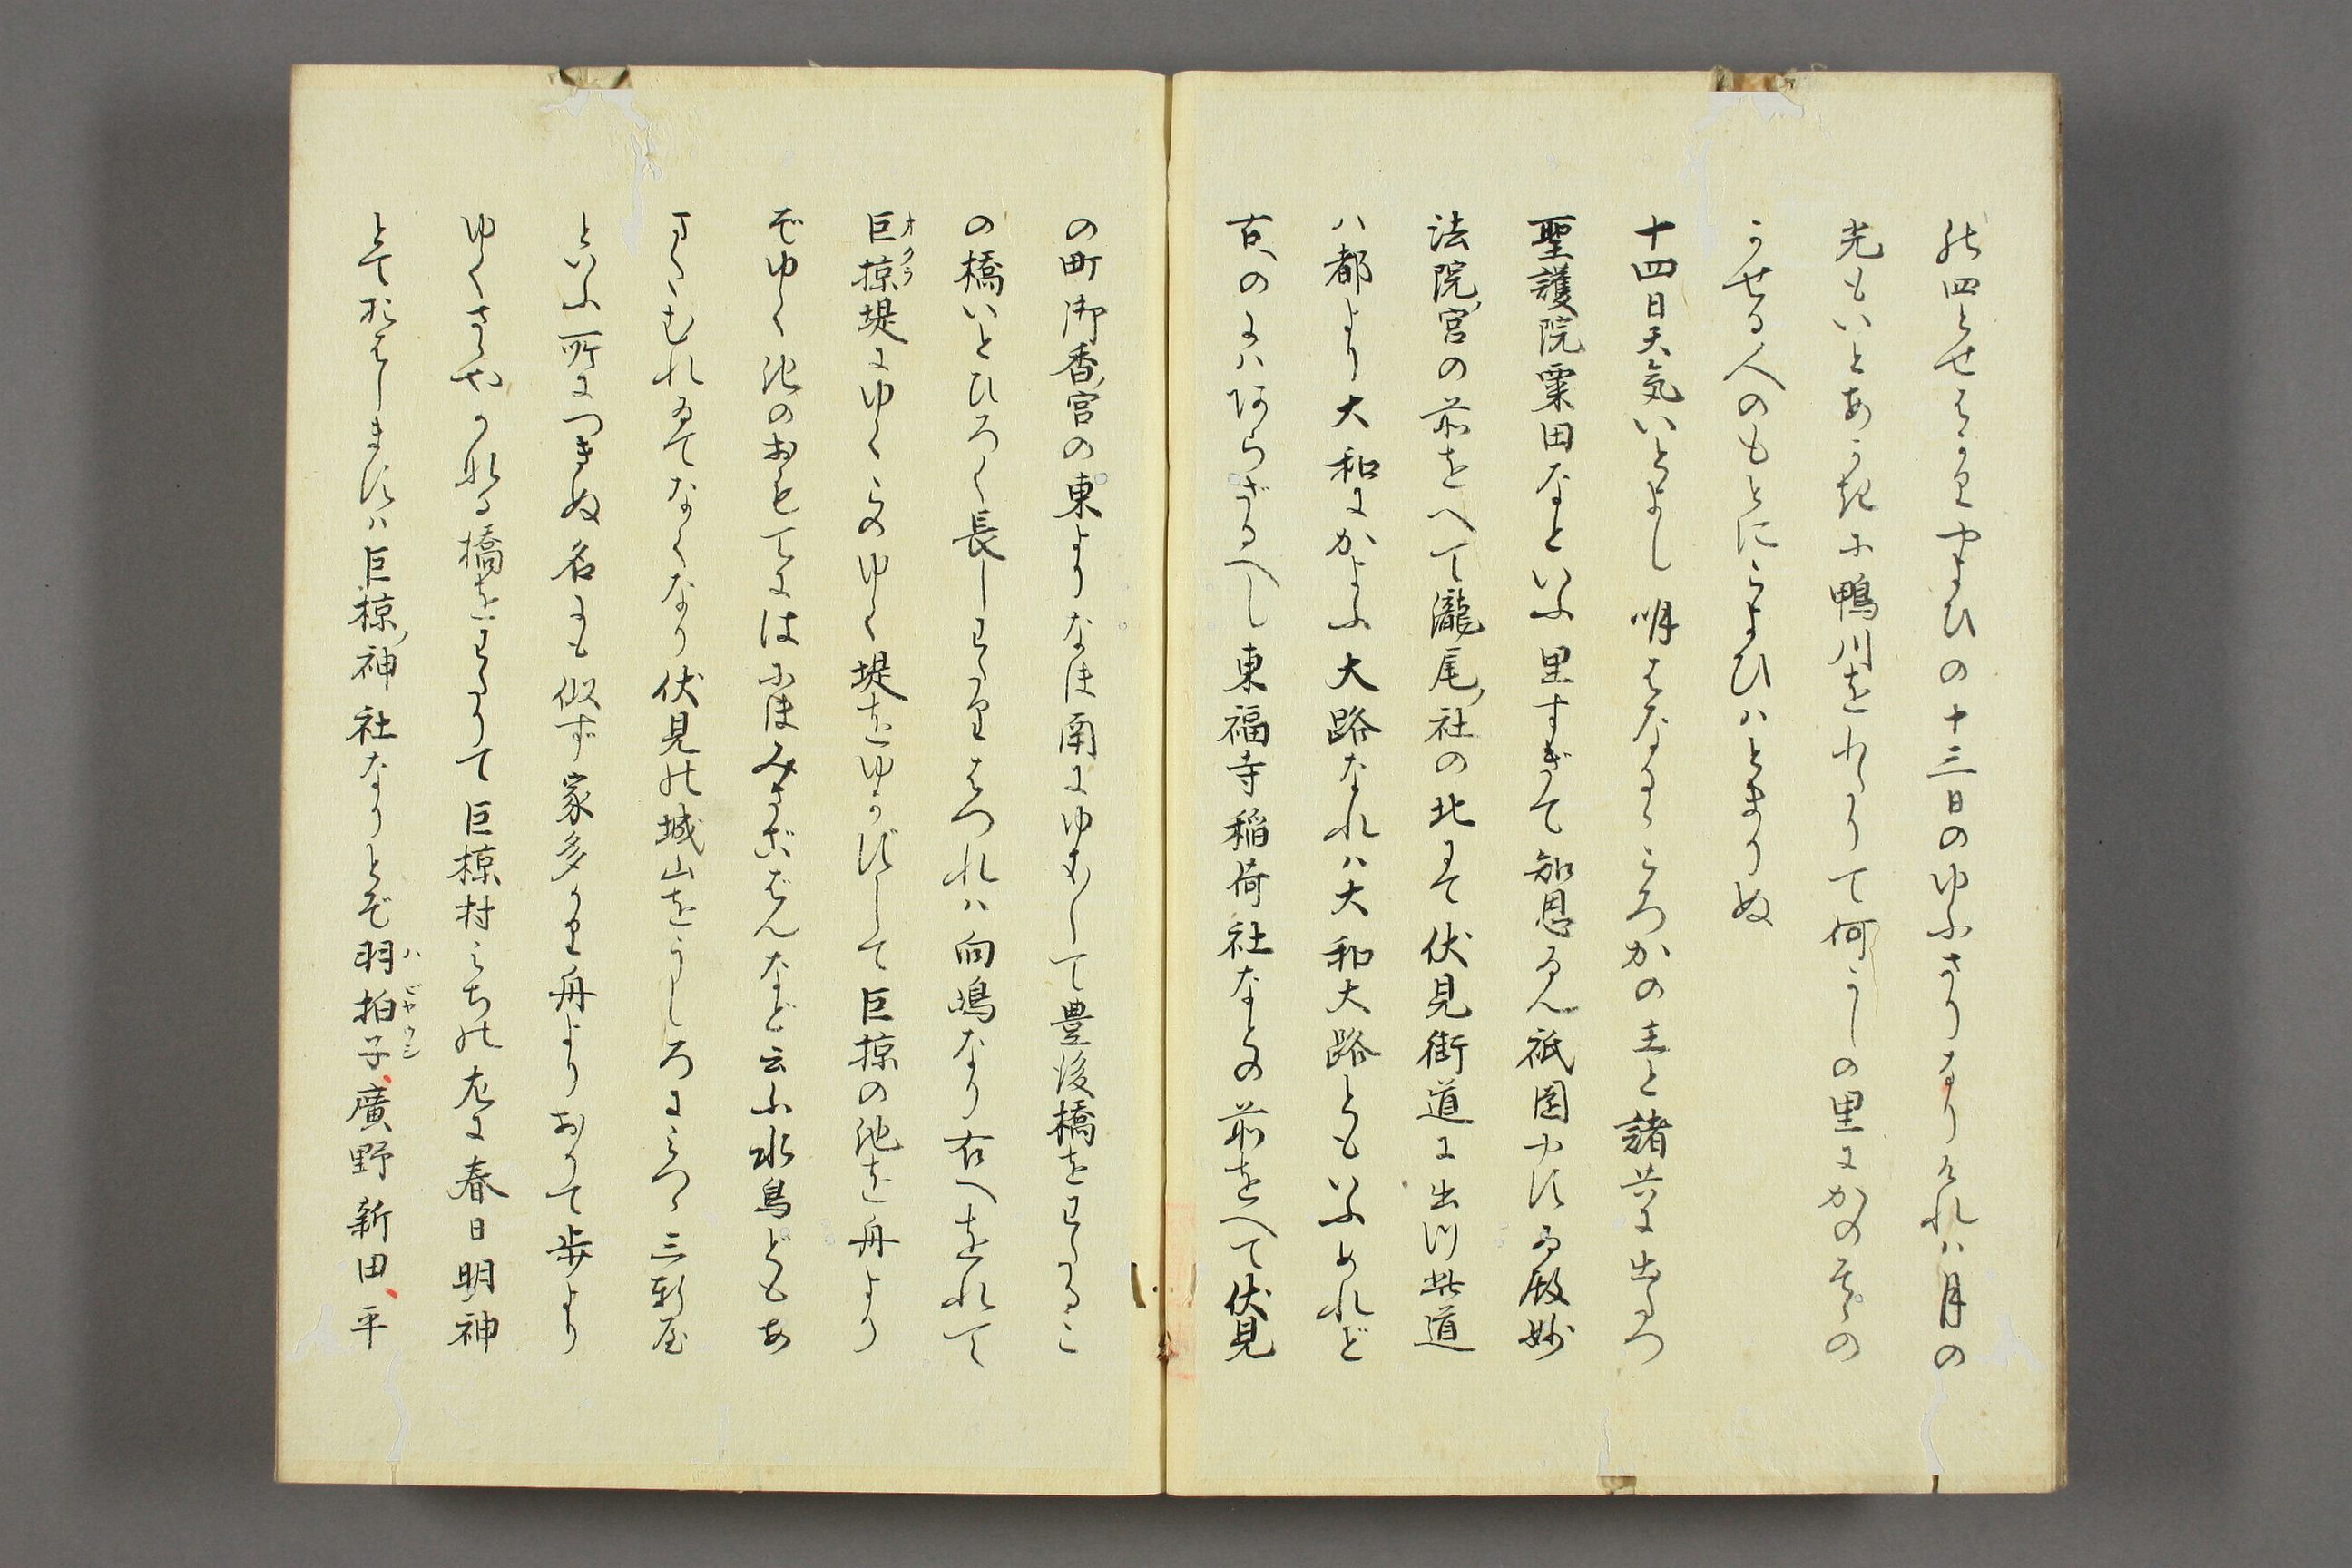 の四とせはかりやよひの十三日のゆふさりなりけれハ月の
光もいとあかきに鴨川をわたりて何かしの里にかの
うせる人のもとにこよひハとまりぬ
十四日天気いとよし明はなるゝころかの主と諸共に出たつ
聖護院粟田なといふ里すぎて知恩ゐん祇園やしろ殿妙
法院宮の前をへて瀧尾社の北にて伏見街道に出つ此道
ハ都より大和にかよふ大路なれハ大和大路ともいふめれど
古へのにハあらざるへし東福寺稲荷社なとの前をへて伏見
の町御香宮の東よりなほ南にゆきて豊後橋をわたるこ
の橋いとひろく長しわたりはつれハ向嶋なり右へをれて
巨椋堤にゆくこのゆく堤をゆかずして巨椋の池を舟より
ぞゆく池のおもてには にほ みさご ばん など云ふ水鳥どもあ
またむれゐてなくなり伏見の城山をうしろにみつゝ三軒屋
といふ所につきぬ名にも似ず家多かり舟よりおりて歩より
ゆくさゝやかなる橋をわたりて巨椋村みちの左に春日明神
とておはしますハ巨椋神社なりとぞ羽拍子廣野新田平
オクラ
ハビヤウシ